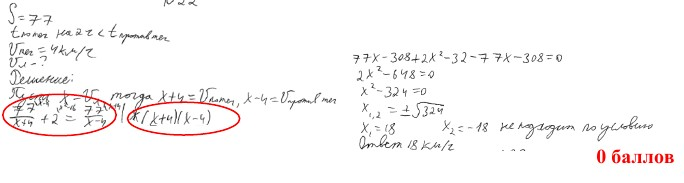 N 22
S = 77
t по теч на 2ч < t против теч
V теч = 4 км/ч
V л - ?
Решение:
Пусть x - V л, тогда x+4 = V по теч, x-4 = V против теч
77/(x+4) + 2 = 77/(x-4) | x(x+4)(x-4)
77x-308+2x²-32-77x-308=0
2x²-648=0
x²-324=0
x₁,₂ = ±√324
x₁=18 x₂=-18 не подходит по условию
Ответ 18 км/ч
0 баллов